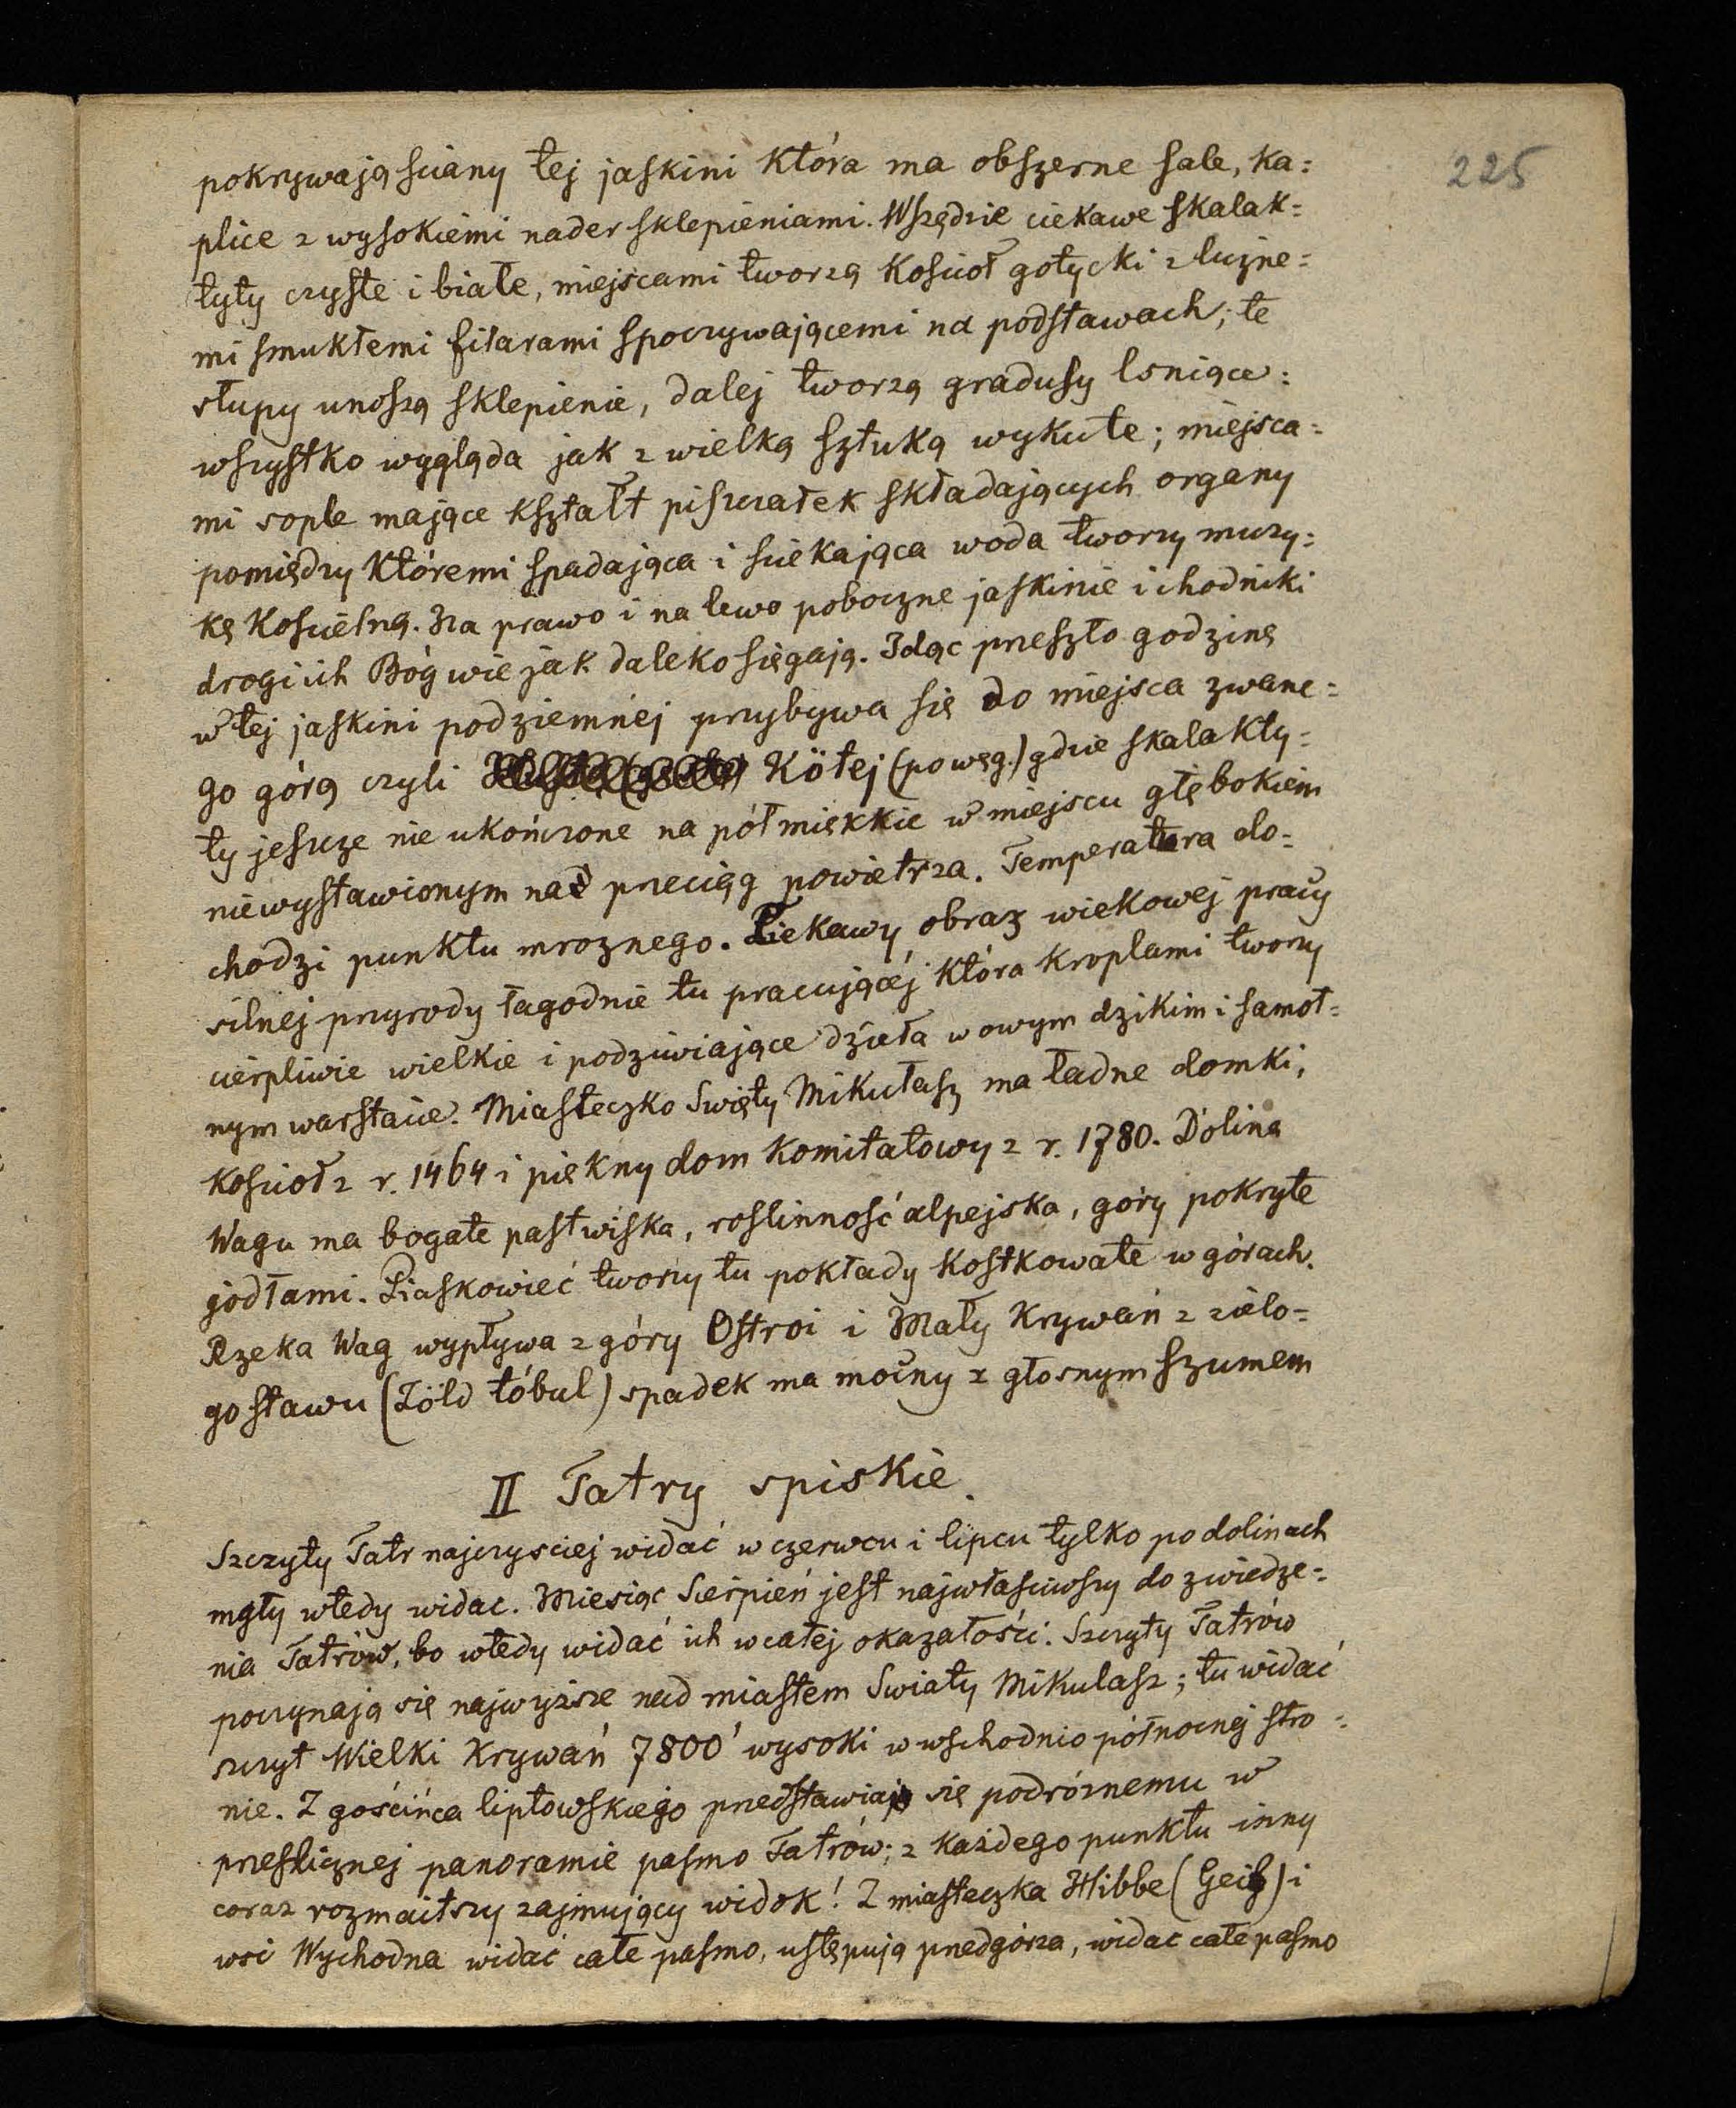 225
pokrywają sciany tej jaskini która ma obszerne sale, ka=
plice z wysokiemi nader sklepieniami. Wszędzie ciekawe skalak=
tyty czyste i białe, miejscami tworzą kościoł gotycki z luźne=
mi smukłemi filarami spoczywającemi na podstawach; te
słupy unoszą sklepienie, dalej tworzą gradusy lsniące:
wszystko wygląda jak z wielką sztuką wykute; miejsca=
mi sople mające kształt piszczałek składających organy
pomiędzy któremi spadająca i sciekająca woda tworzy muzy=
kę kościelną. Na prawo i na lewo poboczne jaskinie i chodniki
drogi ich Bóg wie jak daleko sięgają. Idąc przeszło godzinę
w tej jaskini podziemnéj przybywa się do miejsca zwane=
go górą czyli Kötej (po węg.) gdzie skalakty=
ty jeszcze nie ukończone na pół miękkie w miejscu głębokiem
niewystawionym na przeciąg powietrza. Temperatura do=
chodzi punktu mroznego. Ciekawy obraz wiekowej pracy
silnej przyrody łagodnie tu pracującéj która kroplami tworzy
cierpliwie wielkie i podziwiające dzieła w owym dzikim i samot=
nym warstacie. Miasteczko Swięty Mikułasz ma ładne domki,
kościoł z r. 1464 i piękny dom komitatowy z r. 1780. Dolina
Wagu ma bogate pastwiska, roslinność alpejska, góry pokryte
jodłami. Piaskowieć tworzy tu pokłady kostkowate w górach.
Rzeka Wag wypływa z góry Ostroi i Mały Krywań z zielo=
go stawu (Zöld tóbul) spadek ma mocny z głosnym szumem
II Tatry spiskie.
Szczyty Tatr najczysciej widać w czerwcu i lipcu tylko po dolinach
mgły wtedy widac. Miesiąc Sierpień jest najwłasciwszy do zwiedze=
nia Tatrów, bo wtedy widać ich w całej okazałości. Szczyty Tatrów
poczynają się najwyższe nad miastem Swiąty Mikulasz; tu widać
szczyt Wielki Krywań 7800' wysoki w wschodnio północnej stro=
nie. Z gościńca liptowskiego przedstawiaja się podróznemu w
przeslicznej panoramie pasmo Tatrów; z każdego punktu inny
coraz rozmaitszy zajmujący widok! Z miasteczka Hibbe (Geib) i
wsi Wychodna widać całe pasmo, ustępują przedgórza, widac całe pasmo